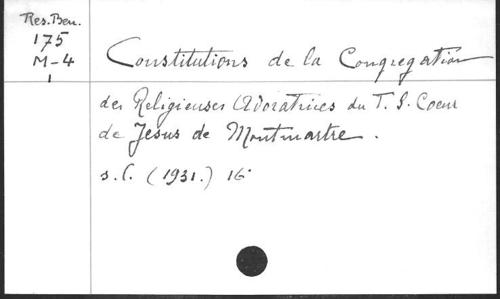 Res. Ben.
175
M-4
1
Constitutions de la Congregation
des Religieuses Adoratrices du T. S. Coeur
de Jesus de Montmartre.
s. l. (1931.) 16°